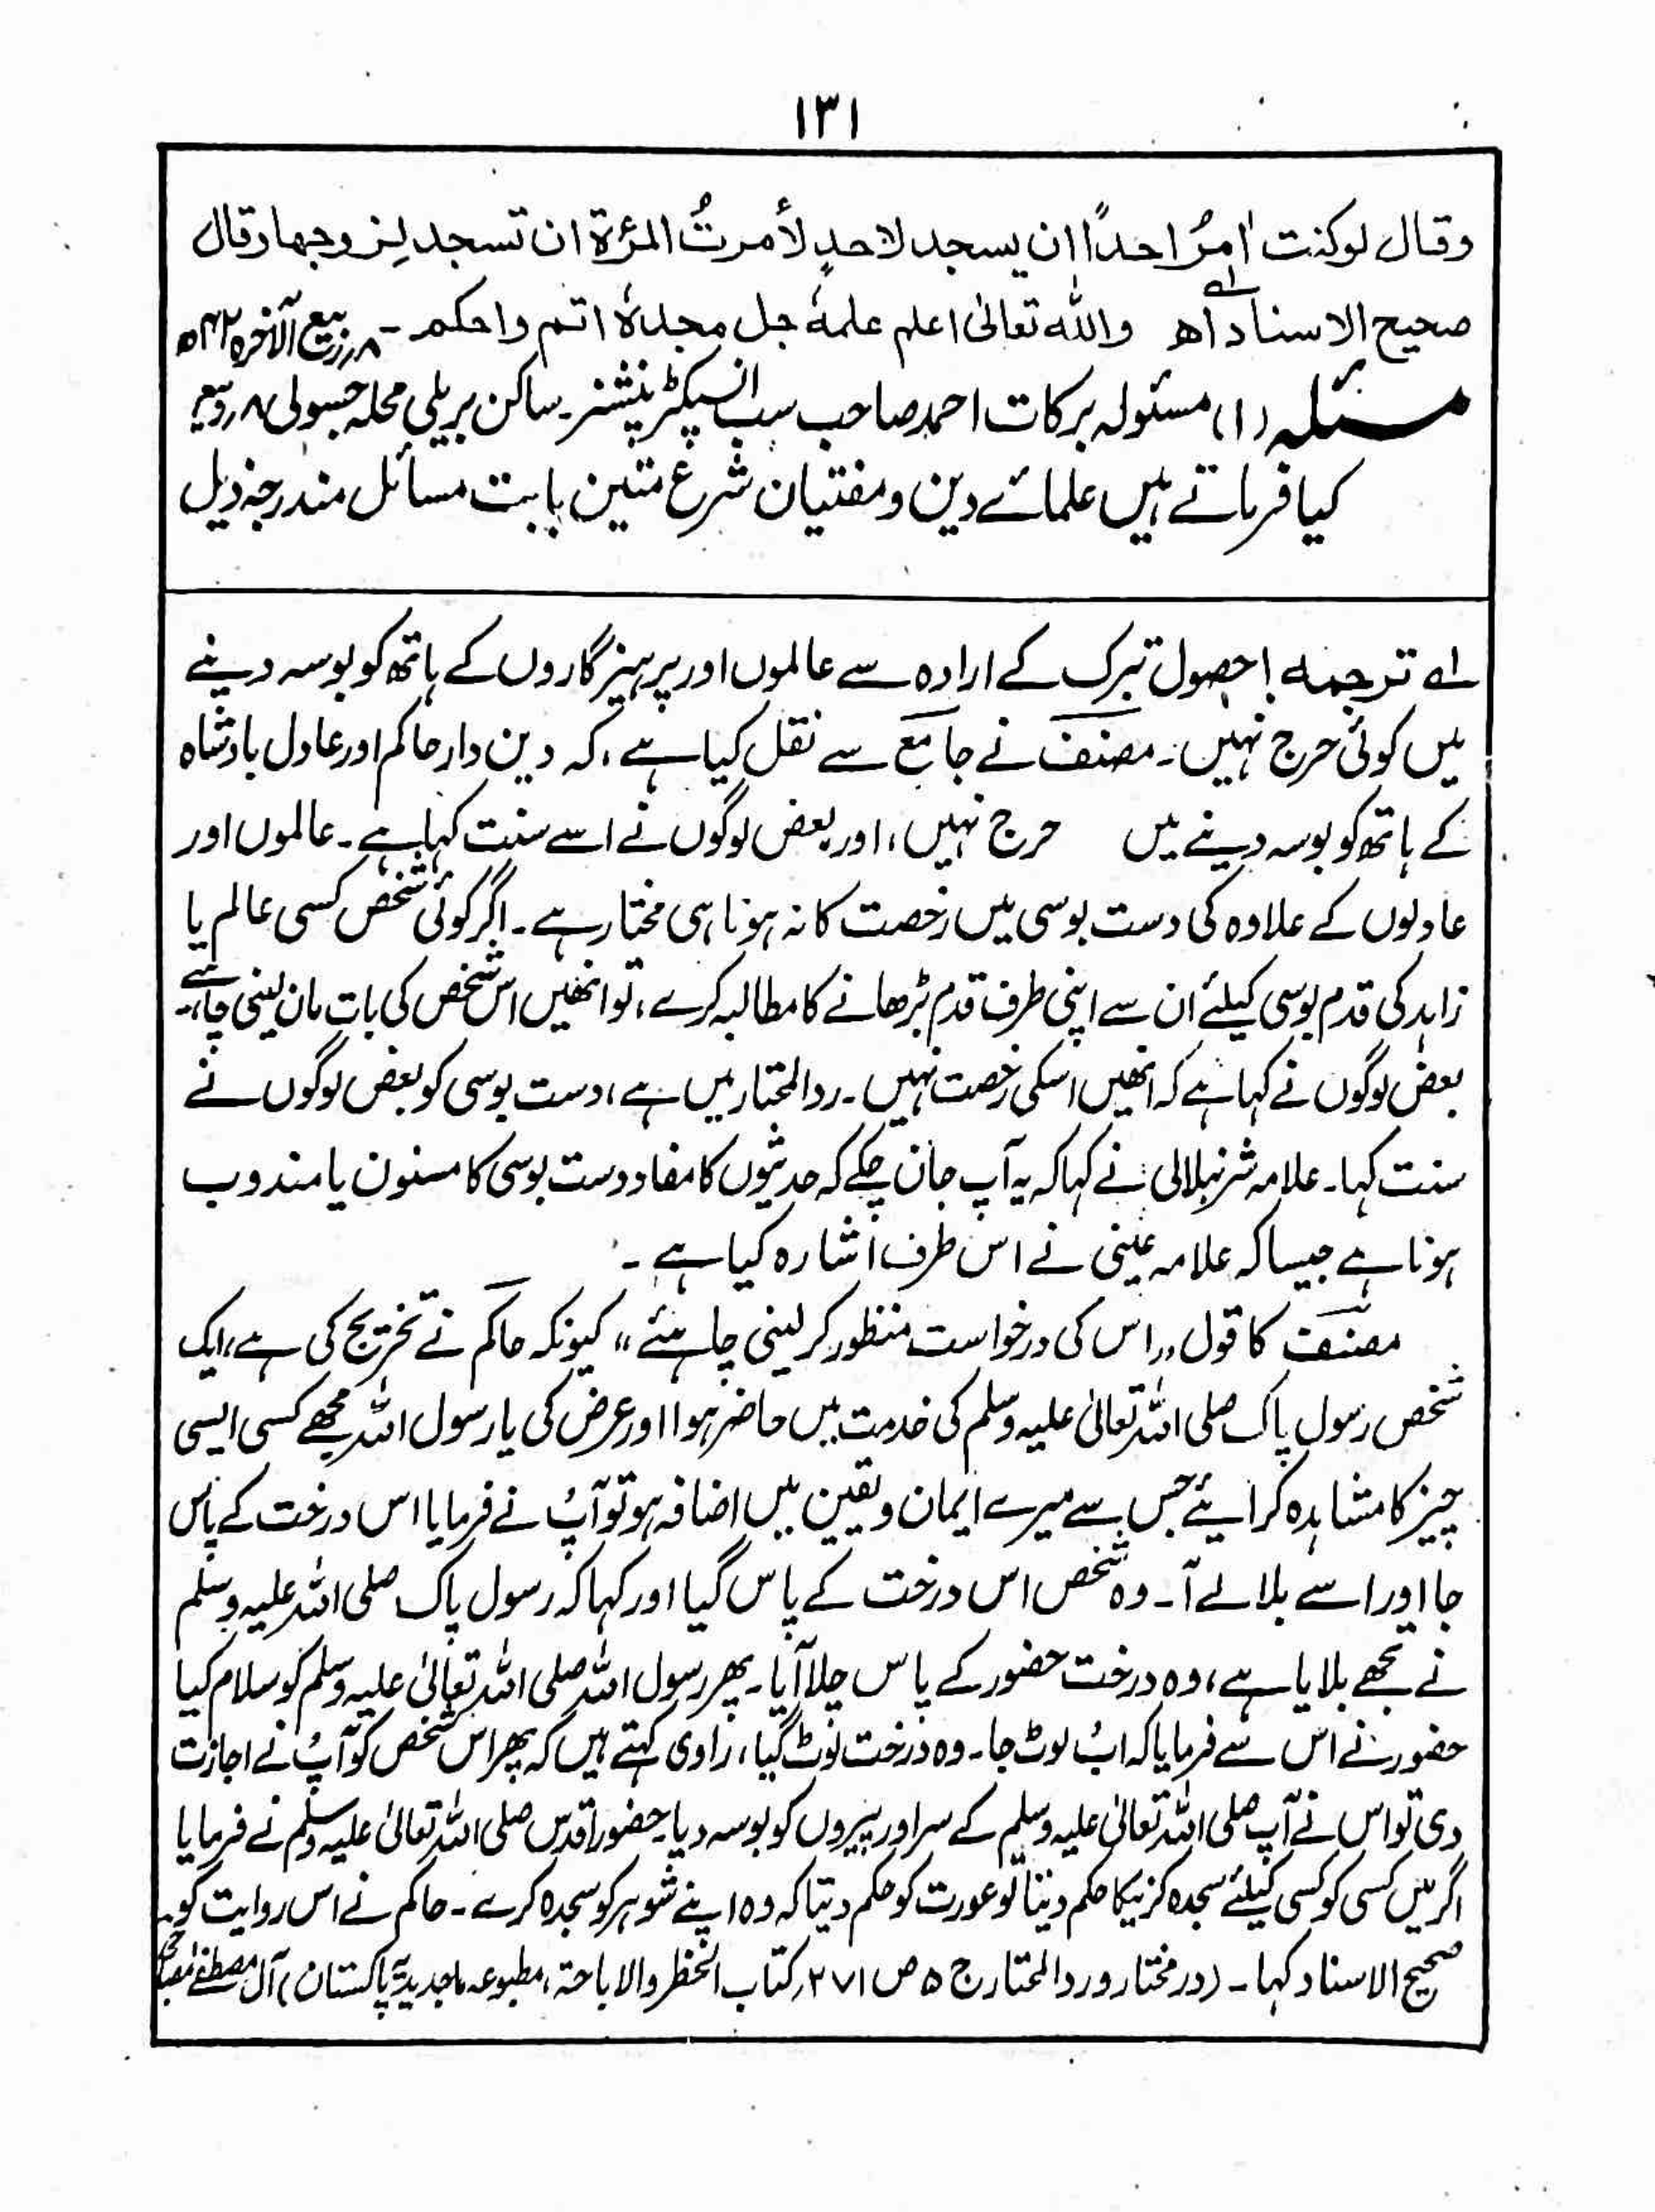 ۱۳۱
وقال لوکنت اٰمرُ احداً ان یسجد لاحدٍ لأمرتُ المرٔۃ ان تسجد لِزوجھا وقال
صحیح الاسناد اھ لے واللہ تعالیٰ اعلم علمہٗ جل مجدہٗ اتم واحکم ۔ ۸؍ ربیع الآخرہ
مسئلہ (۱) مسئولہ برکات احمد صاحب سب انسپکٹر پنشنر۔ ساکن بریلی محلہ جسولی ۸؍ ربیع
کیا فرماتے ہیں علمائے دین و مفتیان شرع متین بابت مسائل مندرجہ ذیل
لے ترجمہ ! حصول تبرک کے ارادہ سے عالموں اور پرہیزگاروں کے ہاتھ کو بوسہ دینے
میں کوئی حرج نہیں۔ مصنف نے جامع سے نقل کیا ہے، کہ دین دار حاکم اور عادل بادشاہ
کے ہاتھ کو بوسہ دینے میں حرج نہیں، اور بعض لوگوں نے اسے سنت کہا ہے۔ عالموں اور
عادلوں کے علاوہ کی دست بوسی میں رخصت کا نہ ہونا ہی مختار ہے۔ اگر کوئی شخص کسی عالم یا
زاہد کی قدم بوسی کیلئے ان سے اپنی طرف قدم بڑھانے کا مطالبہ کرے، تو انھیں اس شخص کی بات مان لینی چاہئے۔
بعض لوگوں نے کہا ہے کہ انھیں اسکی رخصت نہیں۔ ردالمحتار میں ہے، دست بوسی کو بعض لوگوں نے
سنت کہا۔ علامہ شرنبلالی نے کہا کہ یہ آپ جان چکے کہ حدیثوں کا مفاد دست بوسی کا مسنون یا مندوب
ہونا ہے جیسا کہ علامہ عینی نے اس طرف اشارہ کیا ہے ۔
مصنف کا قول ،،اس کی درخواست منظور کرلینی چاہئے،، کیونکہ حاکم نے تخریج کی ہے، ایک
شخص رسول پاک صلی اللہ تعالیٰ علیہ وسلم کی خدمت میں حاضر ہوا اور عرض کی یا رسول اللہ مجھے کسی ایسی
چیز کا مشاہدہ کرایئے جس سے میرے ایمان و یقین میں اضافہ ہو تو آپ نے فرمایا اس درخت کے پاس
جا اور اسے بلا لے آ۔ وہ شخص اس درخت کے پاس گیا اور کہا کہ رسول پاک صلی اللہ علیہ وسلم
نے تجھے بلایا ہے، وہ درخت حضور کے پاس چلا آیا۔ پھر رسول اللہ صلی اللہ تعالیٰ علیہ وسلم کو سلام کیا
حضور نے اس سے فرمایا کہ اب لوٹ جا۔ وہ درخت لوٹ گیا، راوی کہتے ہیں کہ پھر اس شخص کو آپ نے اجازت
دی تو اس نے آپ صلی اللہ تعالیٰ علیہ وسلم کے سر اور پیروں کو بوسہ دیا۔ حضور اقدس صلی اللہ تعالیٰ علیہ وسلم نے فرمایا
اگر میں کسی کو کسی کیلئے سجدہ کرنیکا حکم دیتا تو عورت کو حکم دیتا کہ وہ اپنے شوہر کو سجدہ کرے۔ حاکم نے اس روایت کو
صحیح الاسناد کہا۔ (درمختار و ردالمحتار ج ۵ ص ۲۷۱؍ کتاب الحظر والاباحۃ، مطبوعہ ماجدیہ پاکستان) آل مصطفےٰ مصباحی